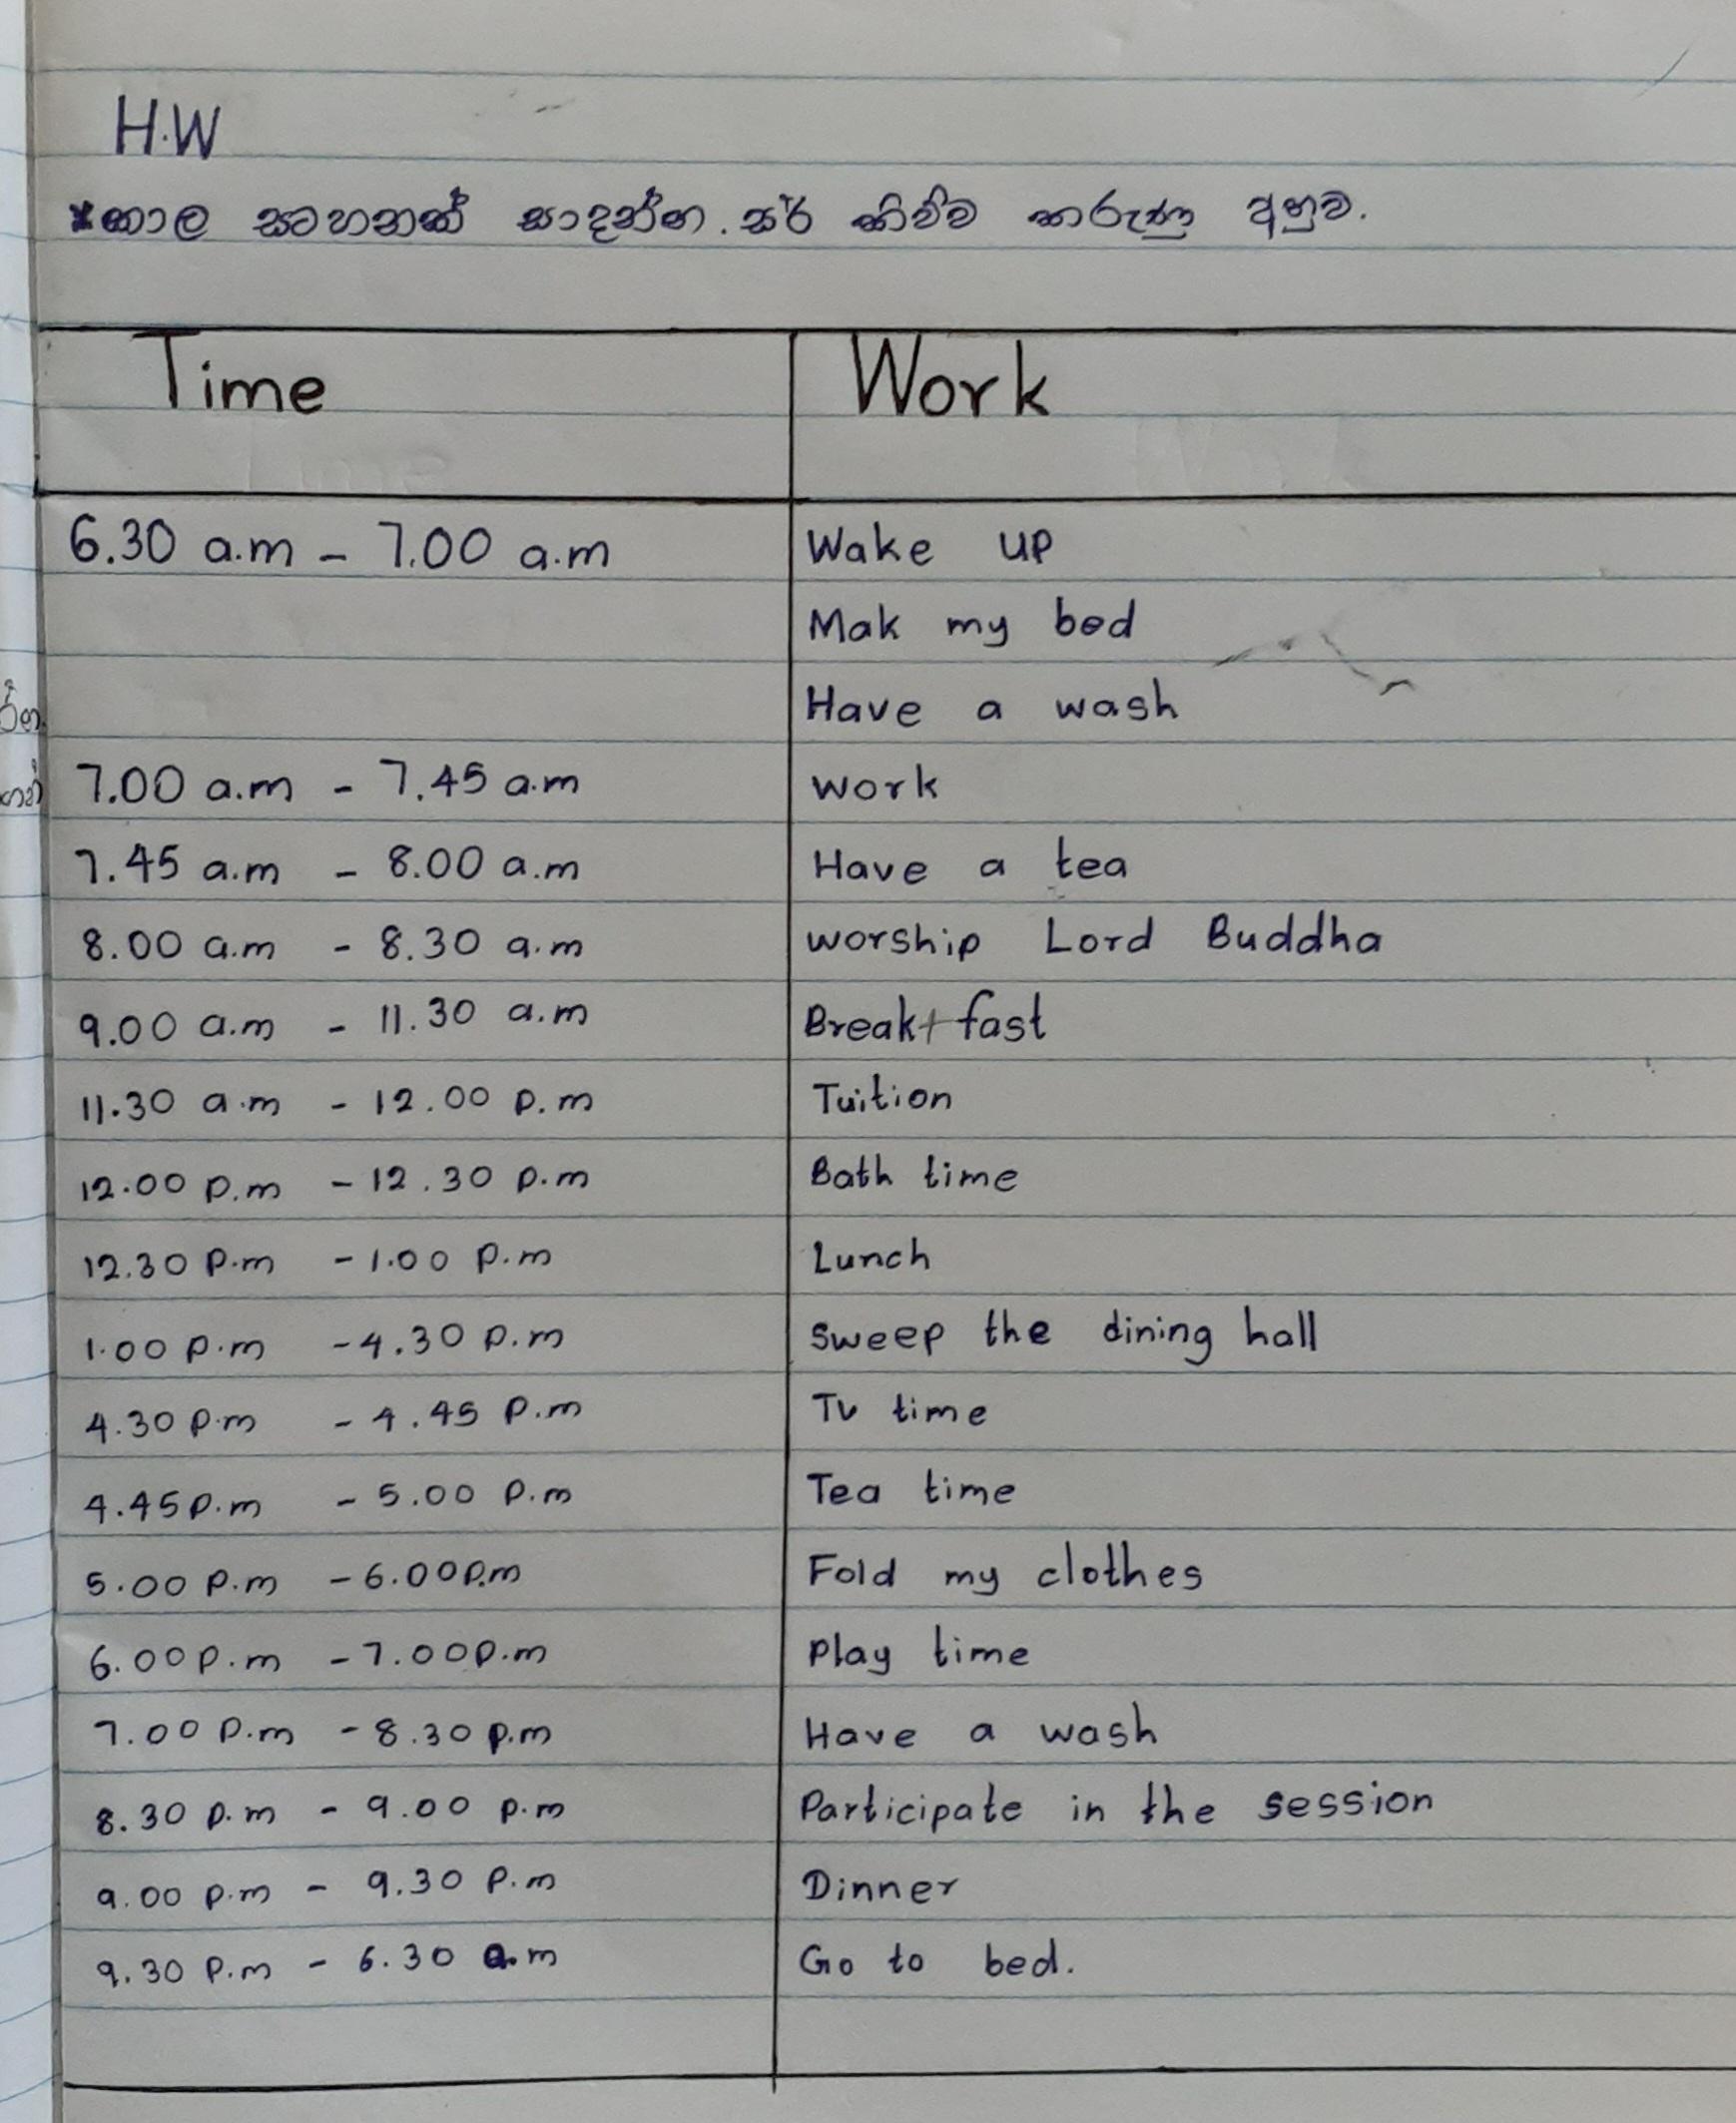 H.W
*කාල සටහනක් සාදන්න. සර් කිව්ව කරුණු අනුව.
Time Work
6.30 a.m - 7.00 a.m Wake up
Mak my bed
Have a wash
7.00 a.m - 7.45 a.m Work
7.45 a.m - 8.00 a.m Have a tea
8.00 a.m - 8.30 a.m Worship Lord Buddha
9.00 a.m - 11.30 a.m Break fast
11.30 a.m - 12.00 p.m Tuition
12.00 p.m - 12.30 p.m Bath time
12.30 p.m - 1.00 p.m Lunch
1.00 p.m - 4.30 p.m Sweep the dining hall
4.30 p.m - 4.45 p.m Tv time
4.45 p.m - 5.00 p.m Tea time
5.00 p.m - 6.00 p.m Fold my clothes
6.00 p.m - 7.00 p.m Play time
7.00 p.m - 8.30 p.m Have a wash
8.30 p.m - 9.00 p.m Participate in the session
9.00 p.m - 9.30 p.m Dinner
9.30 p.m - 6.30 a.m Go to bed.